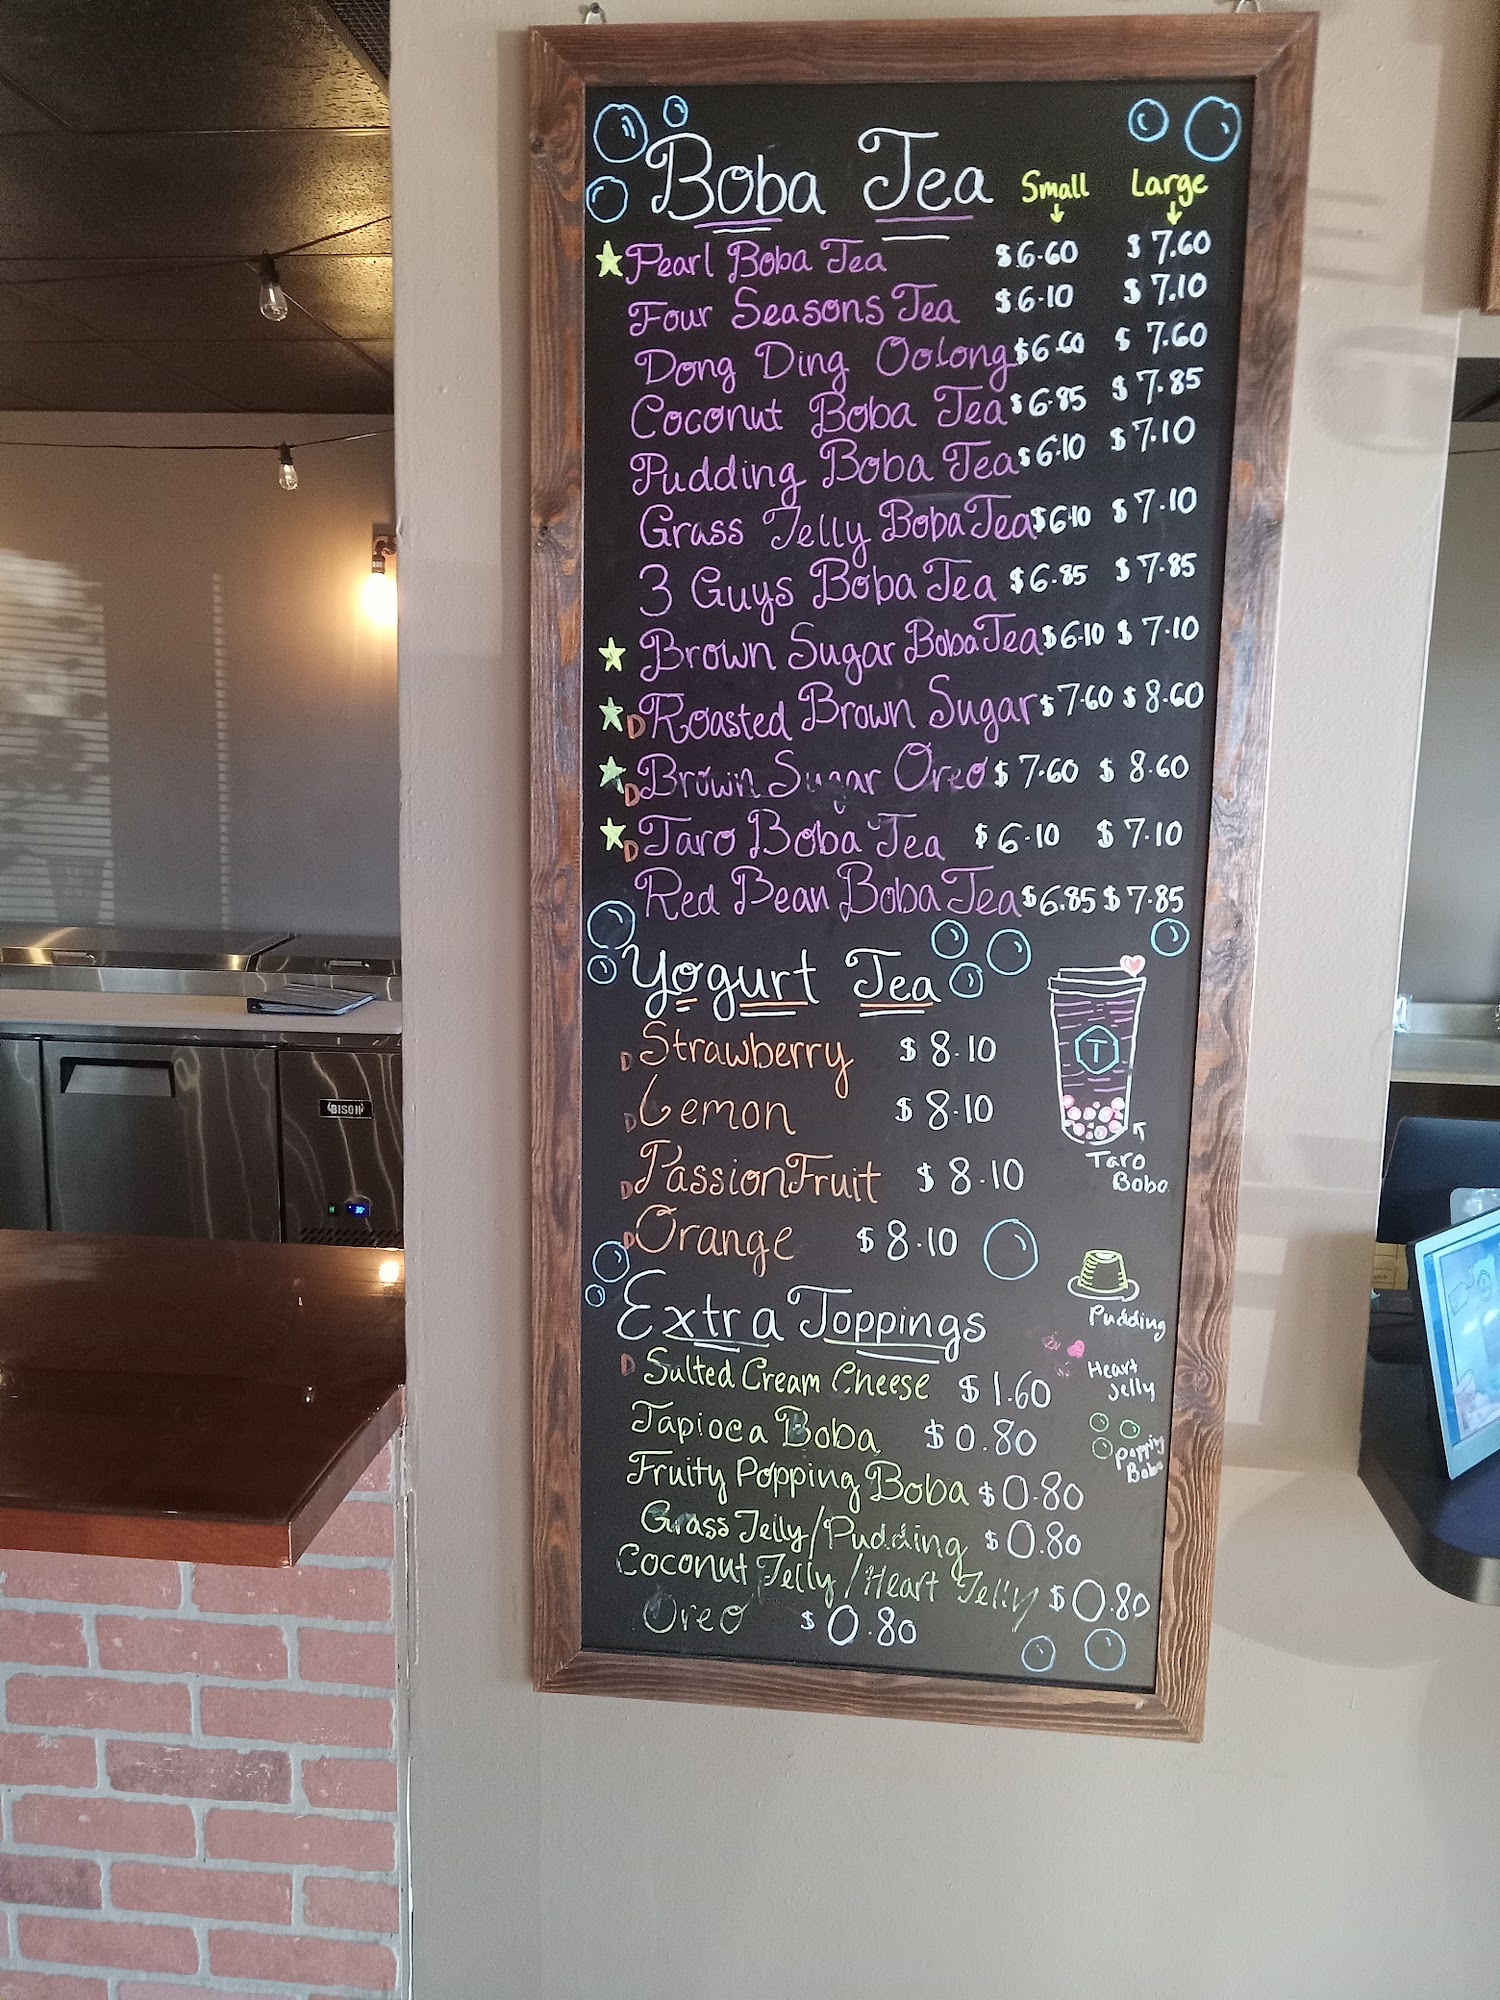 Boba Tea Small Large
Pearl Boba Tea $6.60 $7.60
Four Seasons Tea $6.10 $7.10
Dong Ding Oolong $6.60 $7.60
Coconut Boba Tea $6.85 $7.85
Pudding Boba Tea $6.10 $7.10
Grass Jelly Boba Tea $6.10 $7.10
3 Guys Boba Tea $6.85 $7.85
Brown Sugar Boba Tea $6.10 $7.10
D Roasted Brown Sugar $7.60 $8.60
D Brown Sugar Oreo $7.60 $8.60
D Taro Boba Tea $6.10 $7.10
Red Bean Boba Tea $6.85 $7.85
Yogurt Tea
D Strawberry $8.10
D Lemon $8.10
D PassionFruit $8.10
D Orange $8.10
T
Taro
Boba
Extra Toppings
D Salted Cream Cheese $1.60
Tapioca Boba $0.80
Fruity Popping Boba $0.80
Grass Jelly/Pudding $0.80
Coconut Jelly/Heart Jelly $0.80
Oreo $0.80
Pudding
Heart
Jelly
Popping
Boba
BISON